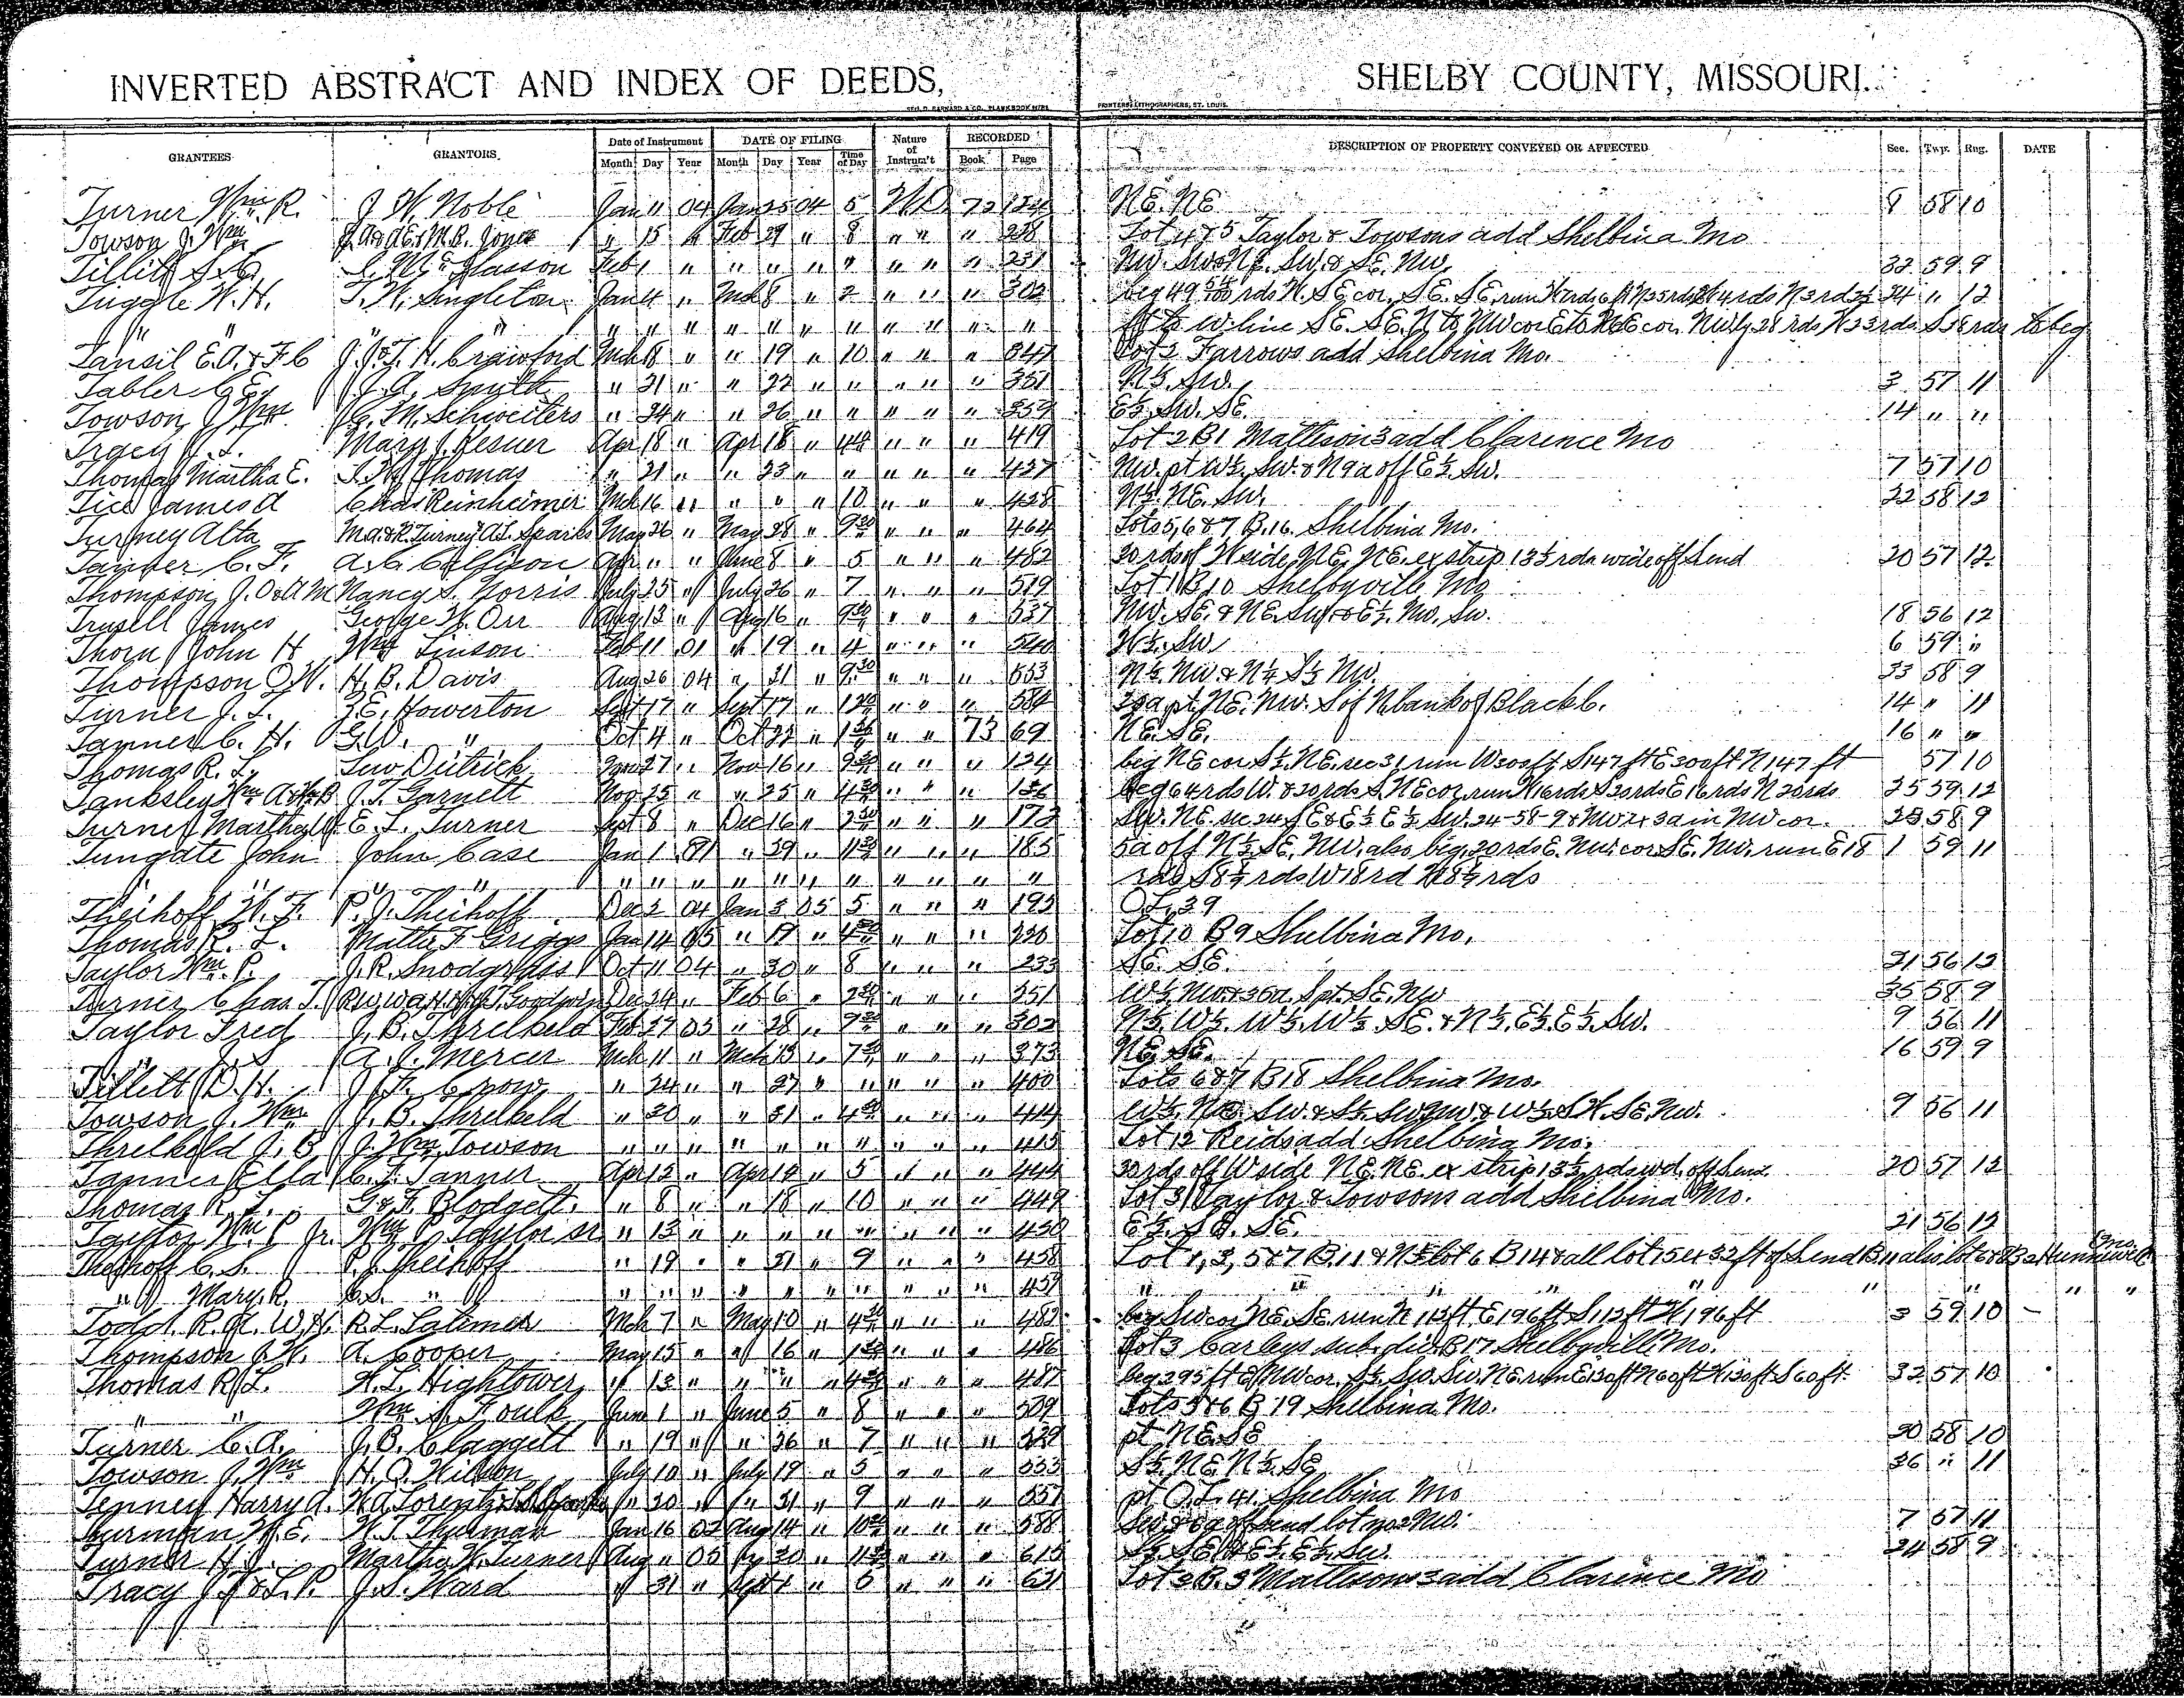 INVERTED ABSTRACT AND INDEX OF DEEDS, SHELBY COUNTY, MISSOURI.
GEO. D. BARNARD & CO. BLANK BOOK M'FRS, PRINTERS, LITHOGRAPHERS, ST. LOUIS.
GRANTEES GRANTORS Date of Instrument DATE OF FILING Nature of Instrum't RECORDED DESCRIPTION OF PROPERTY CONVEYED OR AFFECTED Sec. Twp. Rng. DATE
Month Day Year Month Day Year Time of Day Book Page
Turner Wm. R. J. W. Noble Jan 11 04 Jan 25 04 5 WD 72 124 NE. NE 8 58 10
Towson J. Wm J.A. & A.E. & M.B. Jones " 15 " Feb 29 " 8 " " " 238 Lot 4 & 5 Taylor & Towsons add Shelbina Mo
Tillitt S. Mc Glasson Feb 1 " " " " " " " " 231 NW. SW & NE. SW. & SE. NW. 32 59 9
Tuggle W. H. T. W. Singleton Jan 4 " Mch 8 " 2 " " " 302 beg 49 rds N. SE cor. SE. SE. run 24 " 12
" " " " " " " " " " " " " " " ft to W line SE. SE. N to NW cor E to NE cor. to beg
Tansil E.A. & F.C J. & T. H. Crawford Mch 18 " " 19 " 10 " " " 347 Lot 2 Farrows add Shelbina Mo.
Tabler C. Ey J. A. Smith " 21 " " 22 " " " " " 351 N½. SW. 3 57 11
Towson J. Wm C. M. Schweiters " 24 " " 26 " " " " " 359 E½. SW. SE. 14 " "
Tracy J. L. Mary J. Lesner Apr 18 " Apr 18 " " " " 419 Lot 2 B 1 Mattison 3 add Clarence Mo
Thomas Martha E. Thomas " 21 " " 23 " " " " " 427 NW. pt W½. SW. & N 9 a off E½. SW. 7 57 10
Tice James A Chas Reinheimer Mch 16 " " " " 10 " " " 428 N½. NE. SW. 22 58 12
Turney Alta M.A. & R. Turney & A.L. Sparks May 26 " May 28 " 9 30 " " " 464 Lots 5, 6 & 7 B. 16. Shelbina Mo.
Tanner C. F. A. C. Callison Apr " " June 8 " 5 " " " 482 30 rds of W side NE. NE. ex strip 13½ rds wide off S end 20 57 12
Thompson J. O. & A M Nancy S. Norris July 25 " July 26 " 7 " " " 519 Lot 1 B 10 Shelbyville Mo
Trusell James George W. Orr Aug 13 " Aug 16 " 9 30 " " " 537 NW. SE. & NE. SW. & E½. NW. SW. 18 56 12
Thorn John H Wm Linson Feb 11 01 " 19 " 4 " " " 540 W½. SW 6 59 "
Thompson O.W. H. B. Davis Aug 26 04 " 31 " 9 30 " " " 553 N½. NW & N½ S½ NW. 33 58 9
Turner J. L. Z. E. Howerton Sept 17 " Sept 17 " " " " 584 pt. NE. NW. S of N bank of Black C. 14 " 11
Tanner C. H. G.W. " Oct 4 " Oct 22 " " " 73 69 NE. SE. 16 " "
Thomas R. L. Lew Dietrick 27 " Nov 16 " 9 30 " " " 124 beg NE cor S½. NE. sec 31 run W 300 ft S 147 ft E 300 ft N 147 ft 57 10
Tanksley Wm A & J. T. Garnett Nov 25 " " 25 " 4 30 " " " 136 beg 64 rds W. & 20 rds S. NE cor, run W 16 rds S 20 rds E 16 rds N 20 rds 25 59 12
Turner Martha W. E. L. Turner Sept 8 " Dec 16 " 2 30 " " " 173 SW. NE. sec 24 SE & E½ E½ SW. 24-58-9 & 3 a in NW cor. 25 58 9
Tungate John John Case Jan 1 81 " 29 " 11 30 " " " 185 5a off N½ SE. NW. also beg. 20 rds E. NW. cor. SE. NW. run E 18 1 59 11
" " " " " " " " " " " " " " " rds S 8½ rds W 18 rd N 8½ rds
Theihoff W. F. P. J. Theihoff Dec 2 04 Jan 3 05 5 " " " 195 O.L. 39
Thomas R. L. Mattie F Griggs Jan 14 05 " 17 " 4 30 " " " 220 Lot 10 B 9 Shelbina Mo.
Taylor Wm. P. J. R. Snodgrass Oct 11 04 " 30 " 8 " " " 233 SE. SE. 21 56 12
Turner Chas T. Goodwin Dec 24 " Feb 6 " 2 30 " " " 251 W½. NW. & 36 a. S pt. SE. NW 35 58 9
Taylor Fred J. B. Threlkeld Feb 27 05 " 28 " 9 30 " " " 302 N½. W½. W½. W½. SE. & N½. E½. E½. SW. 9 56 11
" J. S A. J. Mercer Mch 11 " Mch 13 " 7 30 " " " 373 NE. SE. 16 59 9
Tillitt D. H. J. F. Crow " 24 " " 27 " " " " " 400 Lots 6 & 7 B 18 Shelbina Mo.
Towson J. Wm J. B. Threlkeld " 30 " " 31 " 4 30 " " " 414 9 56 11
Threlkeld J. B J. Wm. Towson " " " " " " " " " " 415 Lot 12 Reids add Shelbina Mo.
Tanner Ella C. F. Tanner Apr 12 " Apr 14 " 5 " " " 444 30 rds off W side NE. NE. ex strip 13½ rds wd. off S end. 20 57 12
Thomas R. L. G. F. Blodgett. " 8 " " 18 " 10 " " " 449 Lot 3 Taylor & Towsons add Shelbina Mo.
Taylor Wm. P Jr. Wm P Taylor sr " 13 " " " " " " " " 450 E½. SE. SE. 21 56 12
Theihoff C. S. P. J. Theihoff " 19 " " 21 " 9 " " " 458 Lot 1, 3, 5 & 7 B. 11 & N½ lot 6 B 14 & all lot 15 ex 32 ft of S end B 11 also lot 6 & 8 B 2 Hunnewell Mo.
" Mary R. C.S. " " " " " " " " " " " 459 " " " " " " " "
Todd. R. A. W.H. R. L. Latimer Mch 7 " May 10 " 4 30 " " " 482 beg SW cor NE. SE. run N 112 ft E 196 ft S 112 ft W 196 ft 3 59 10
Thompson J. W. A. Cooper May 15 " " 16 " 1 30 " " " 486 Lot 3 Carleys sub. div. B 17 Shelbyville Mo.
Thomas R. L. W. L. Hightower " 13 " " " " 4 30 " " " 487 beg 295 ft E NW cor. S½. SW. SW. NE. run E 130 ft N 60 ft W 130 ft S 60 ft. 32 57 10
" " Wm. S. Foulk June 1 " June 5 " 8 " " " 509 Lots 5 & 6 B 19 Shelbina Mo.
Turner C. A. J. B. Claggett " 19 " " 26 " 7 " " " 529 pt NE. SE 20 58 10
Towson J. Wm H. O. Wilson July 10 " July 19 " 5 " " " 553 S½. NE. N½. SE 36 " 11
Tenney Harry A. W. A. Lorentz " 20 " " 31 " 9 " " " 557 pt O.L. 41. Shelbina Mo
Thurman W. E. W. T. Thurman Jan 16 02 Aug 14 " 10 30 " " " 588 7 57 11
Turner H. J. Martha W. Turner Aug " 05 " 30 " 11 30 " " " 615 S½. SE. & E½. E½. SW. 24 58 9
Tracy J. F. & L. P. J. S. Ward " 31 " Sept 1 " 5 " " " 621 Lot 2 B. 3 Mattisons 3 add Clarence Mo